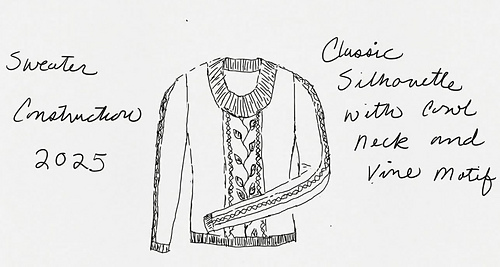 Sweater
Construction
2025
Classic
Silhouette
with Cowl
Neck and
Vine Motif